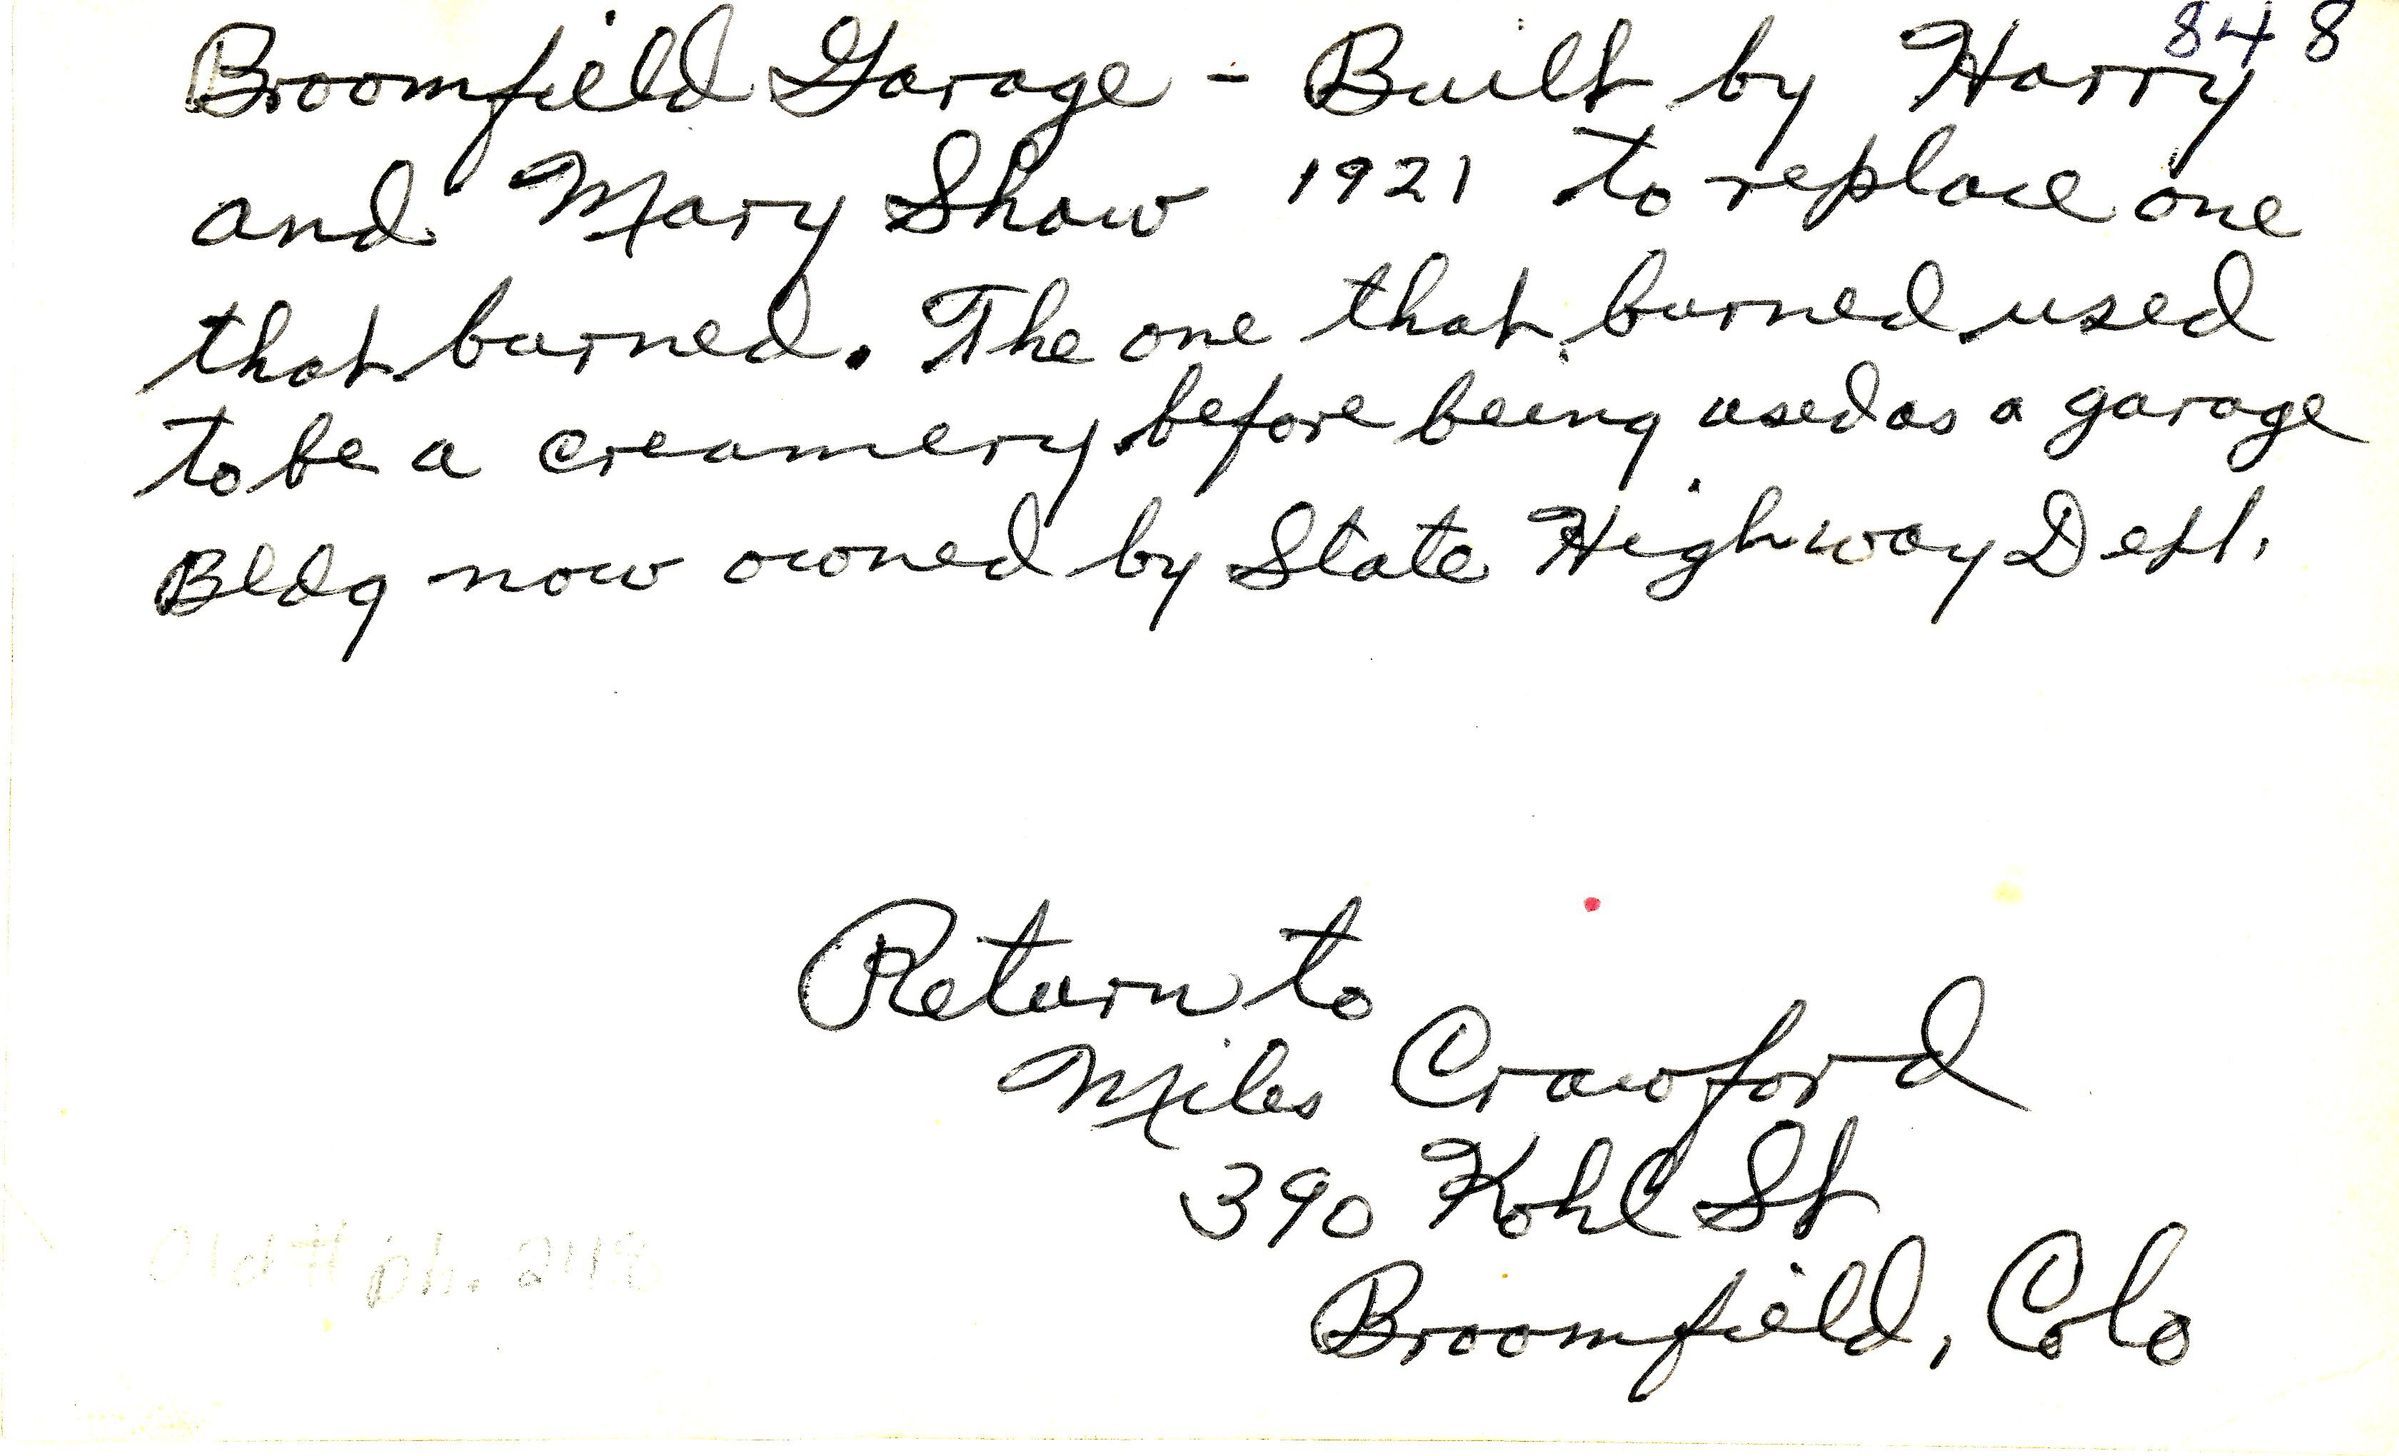 848
Broomfield Garage - Built by Harry
and Mary Shaw 1921 to replace one
that burned. The one that burned used
to be a creamery before being used as a garage
Bldg now owned by State Highway Dept.
Return to
Miles Crawford
390 Kohl St
Broomfield, Colo